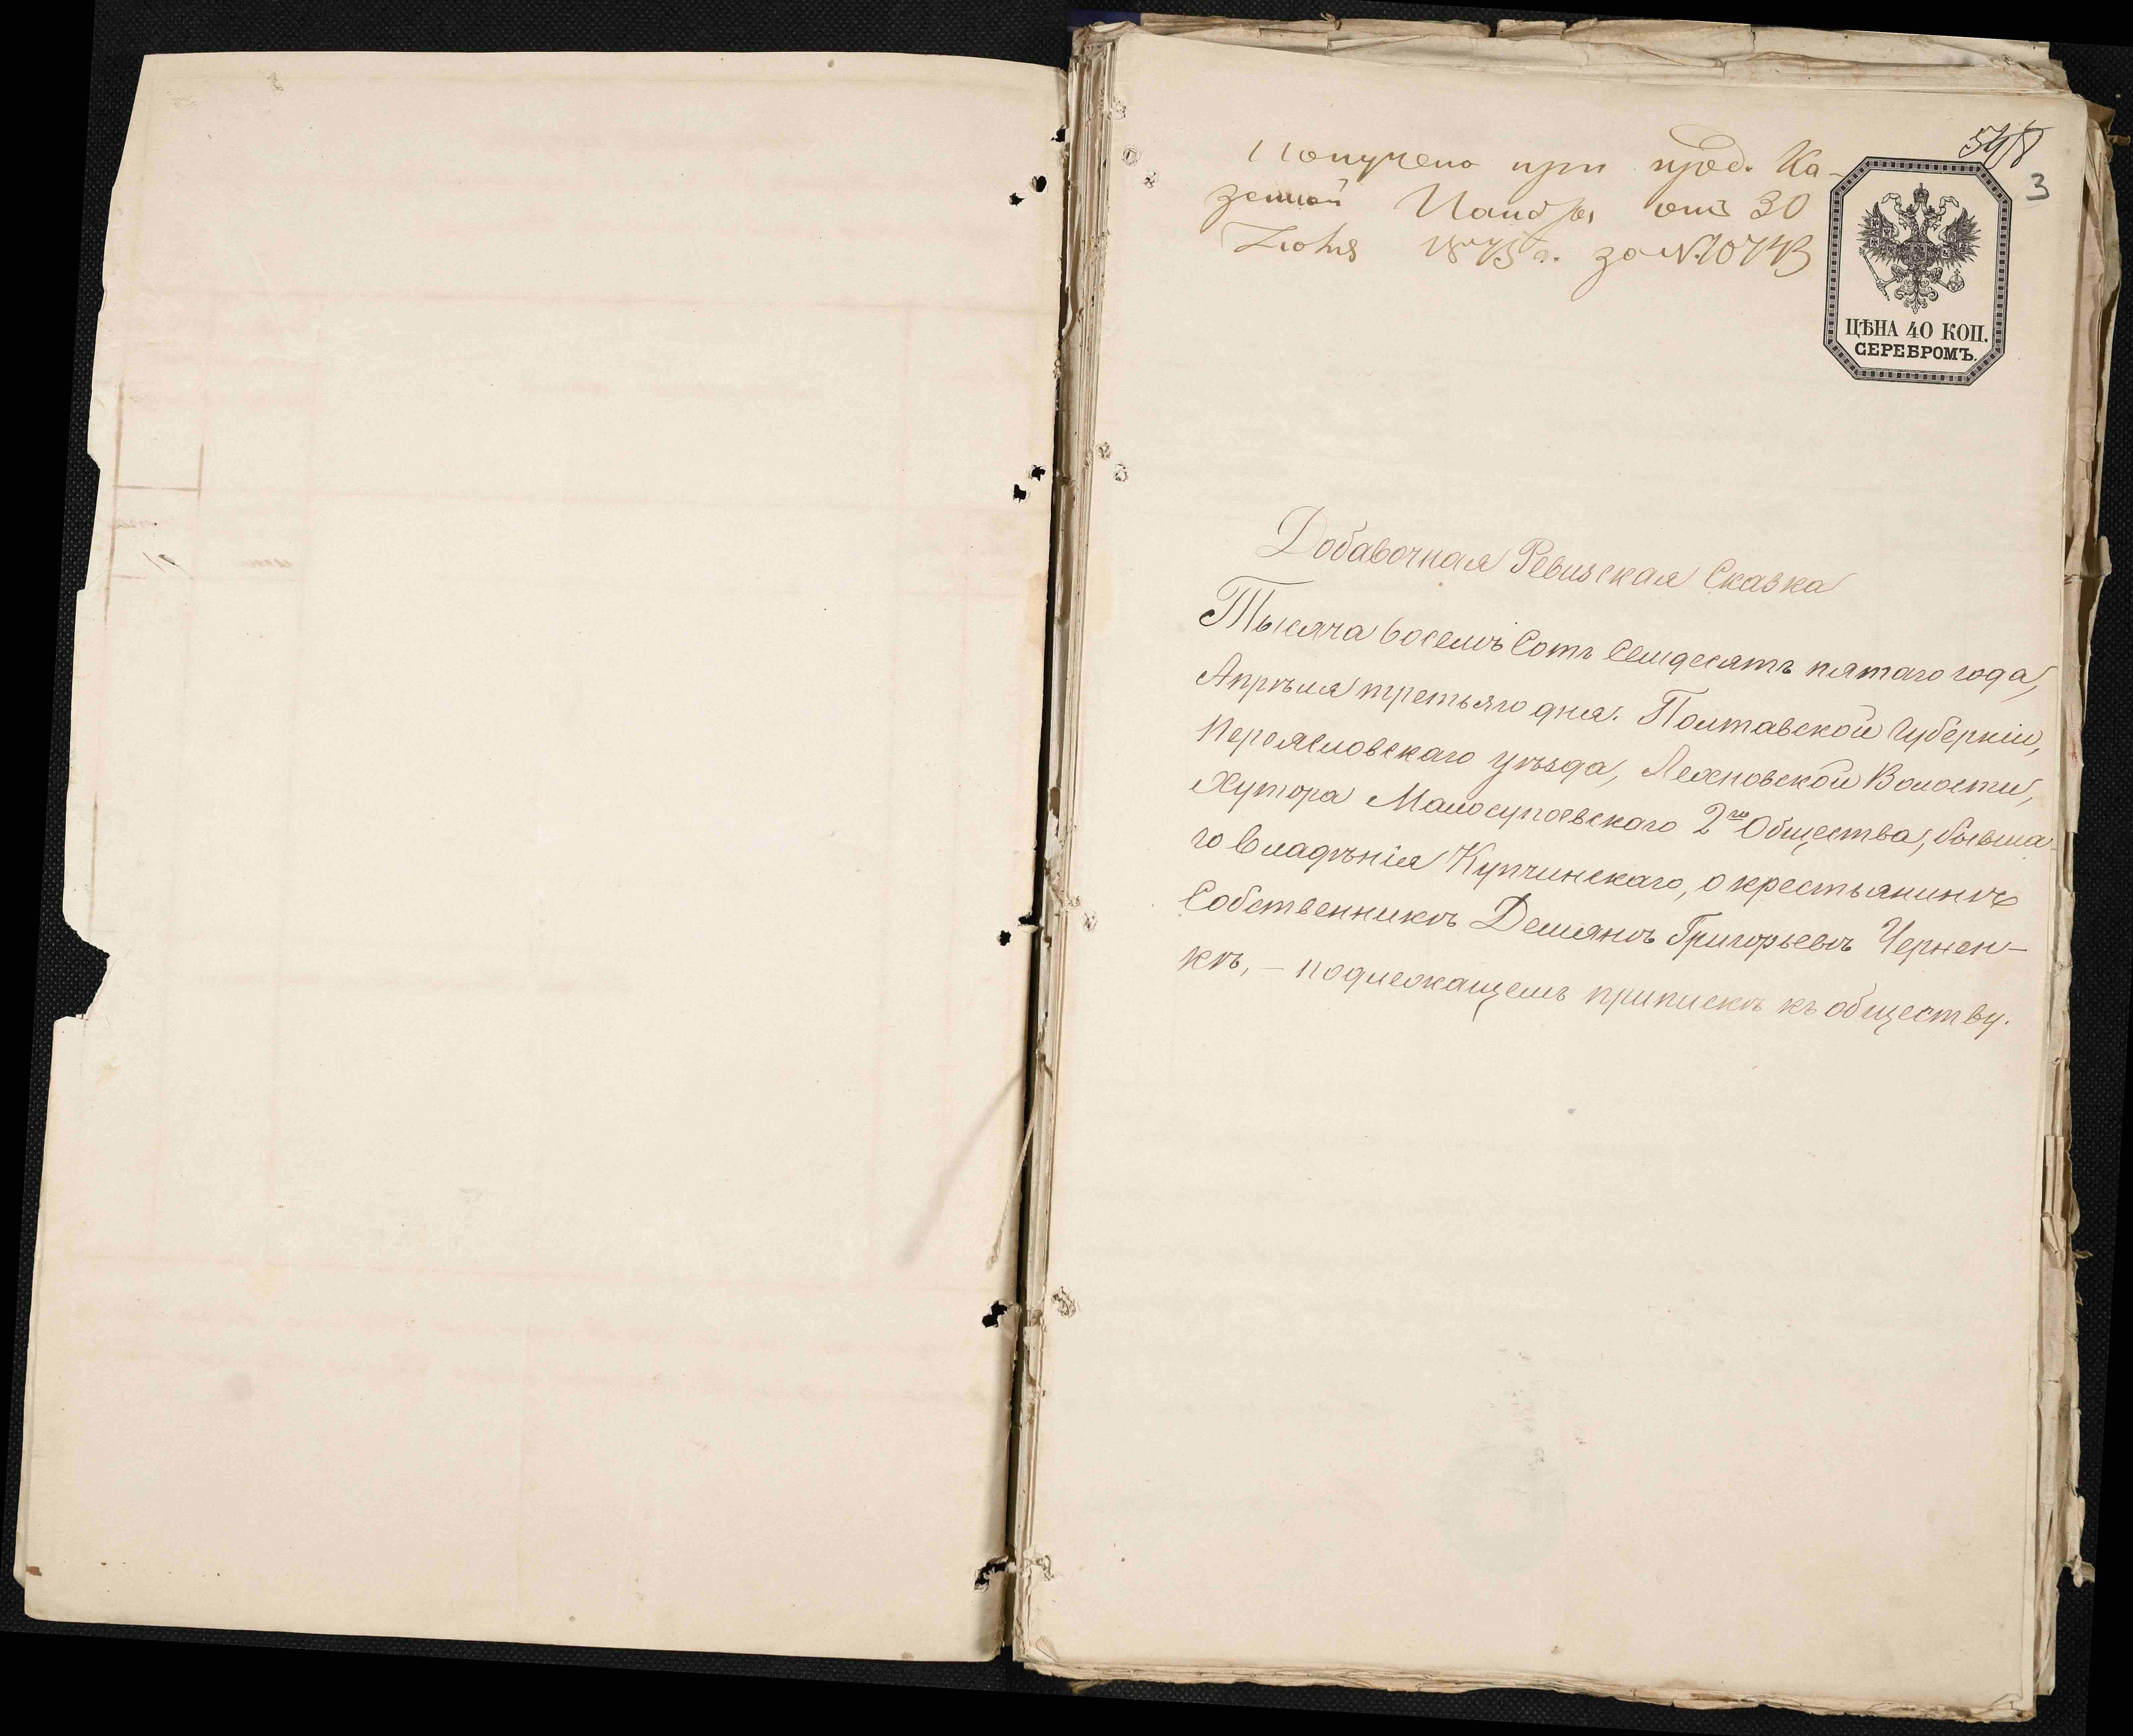 Получено при пред. Ка-
зенной Палаты отъ 30
1875 г. за №
3
ЦѢНА 40 КОП.
СЕРЕБРОМЪ.
Добавочная Ревизская Сказка
Тысяча восемъ Сотъ Семдесятъ пятаго года,
Апрѣля третьяго дня. Полтавской Губерніи,
Переясловскаго уѣзда, Леляновской Волости,
Хутора Малосупоевскаго 2го Общества, бывша-
го владѣнія Купчинскаго, о крестьянинѣ
Собственникѣ Демянѣ Григорьевѣ Чернен-
кѣ, - подлежащемъ припискѣ къ обществу.